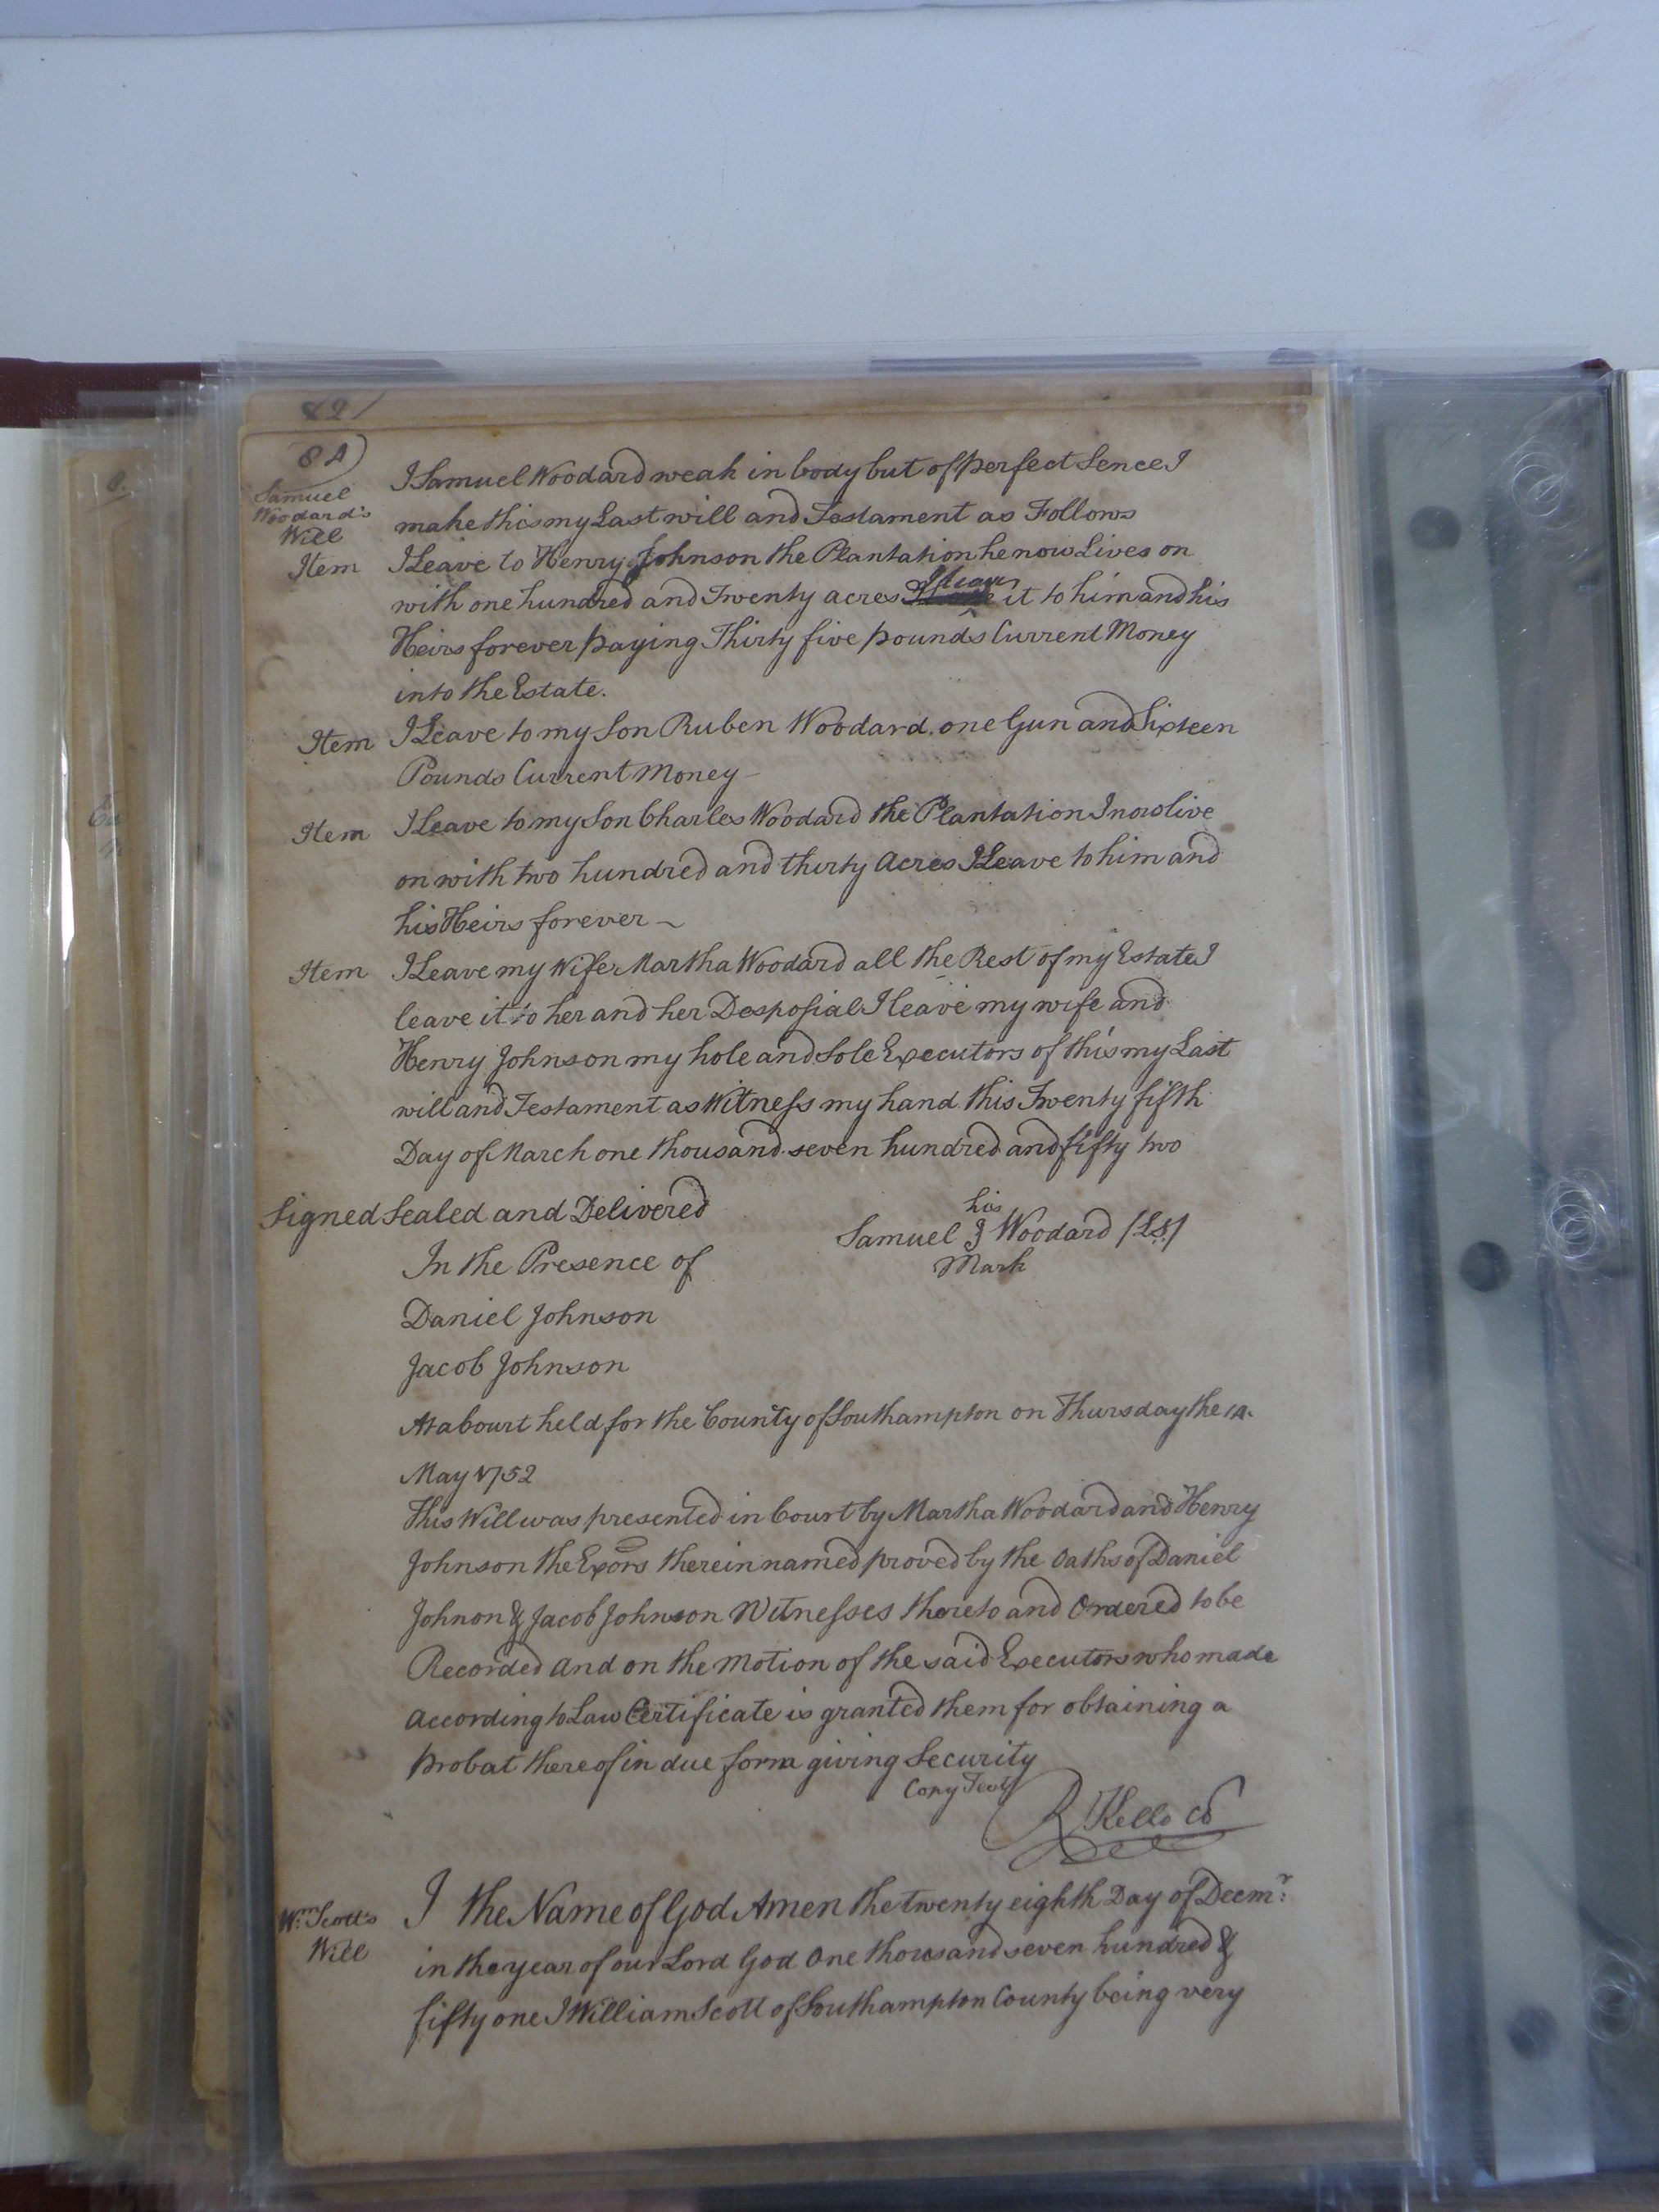 82
84)
Samuel
Woodard's
Will
I Samuel Woodard weak in body but of perfect Sence I
make this my Last will and Testament as Follows
Item I Leave to Henry Johnson the Plantation he now Lives on
with one hundred and Twenty acres I leave it to him and his
Heirs forever paying Thirty five pounds Current Money
into the Estate.
Item I Leave to my Son Ruben Woodard. one Gun and Sixteen
Pounds Current Money -
Item I Leave to my Son Charles Woodard the Plantation I now live
on with two hundred and thirty Acres I Leave to him and
his Heirs forever ~
Item I Leave my Wife Martha Woodard all the Rest of my Estate I
leave it to her and her Desposial I leave my wife and
Henry Johnson my hole and Sole Executors of this my Last
will and Testament as Witness my hand this Twenty fifth
Day of March one thousand seven hundred and fifty two
Signed Sealed and Delivered
In the Presence of
Daniel Johnson
Jacob Johnson
his
Samuel J Woodard (LS)
Mark
At a Court held for the County of Southampton on Thursday the 14.
May 1752
This Will was presented in Court by Martha Woodard and Henry
Johnson the Exors therein named proved by the Oaths of Daniel
Johnon & Jacob Johnson Witnesses thereto and Ordered to be
Recorded And on the Motion of the said Executors who made
According to Law Certificate is granted them for obtaining a
Probat thereof in due form giving Security
Copy Test
R Kello
Wm. Scott's
Will
I the Name of God Amen the twenty eighth Day of Decmr:
in the year of our Lord God One thousand seven hundred &
fifty one I William Scott of Southampton County being very